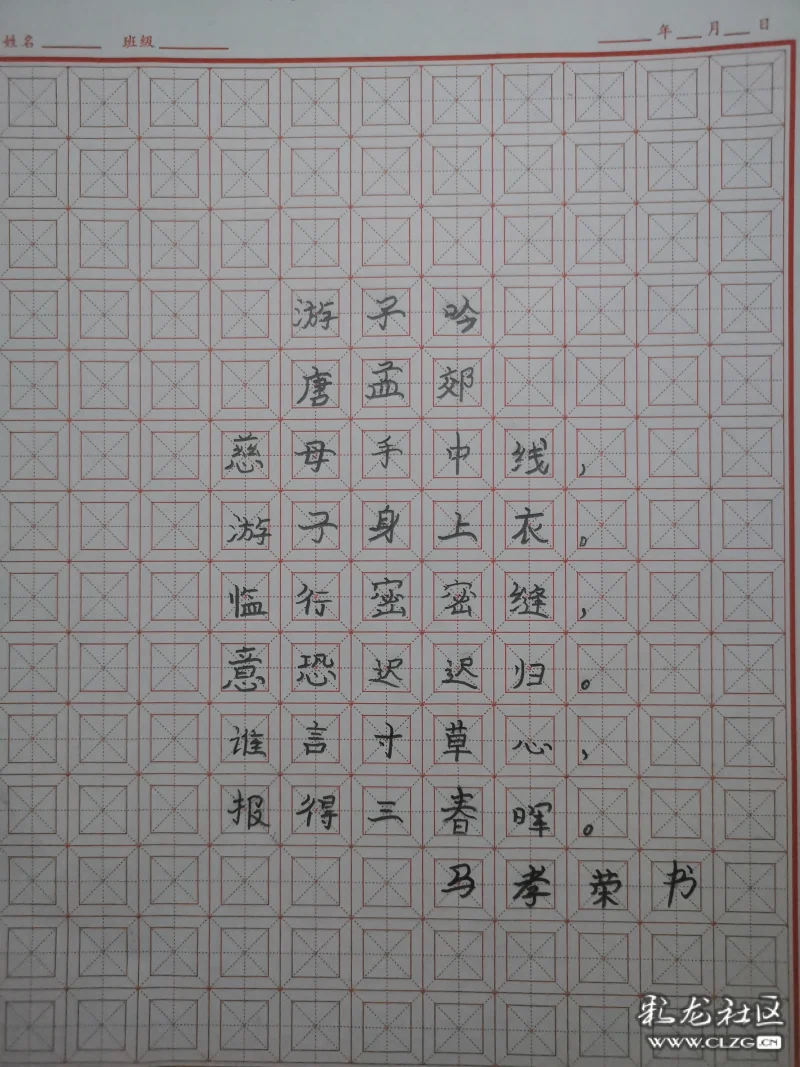 姓名 班级 年 月 日
游子吟
唐孟郊
慈母手中线，
游子身上衣。
临行密密缝，
意恐迟迟归。
谁言寸草心，
报得三春晖。
马孝荣书
彩龙社区
www.CLZG.CN